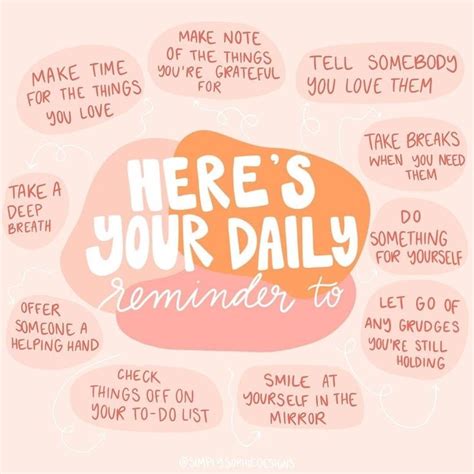 HERE'S
YOUR DAILY
reminder to
MAKE NOTE
OF THE THINGS
YOU'RE GRATEFUL
FOR
TELL SOMEBODY
YOU LOVE THEM
TAKE BREAKS
WHEN YOU NEED
THEM
DO
SOMETHING
FOR YOURSELF
LET GO OF
ANY GRUDGES
YOU'RE STILL
HOLDING
SMILE AT
YOURSELF IN THE
MIRROR
CHECK
THINGS OFF ON
YOUR TO-DO LIST
OFFER
SOMEONE A
HELPING HAND
TAKE A
DEEP
BREATH
MAKE TIME
FOR THE THINGS
YOU LOVE
@SIMPLYSOPHIEDESIGNS